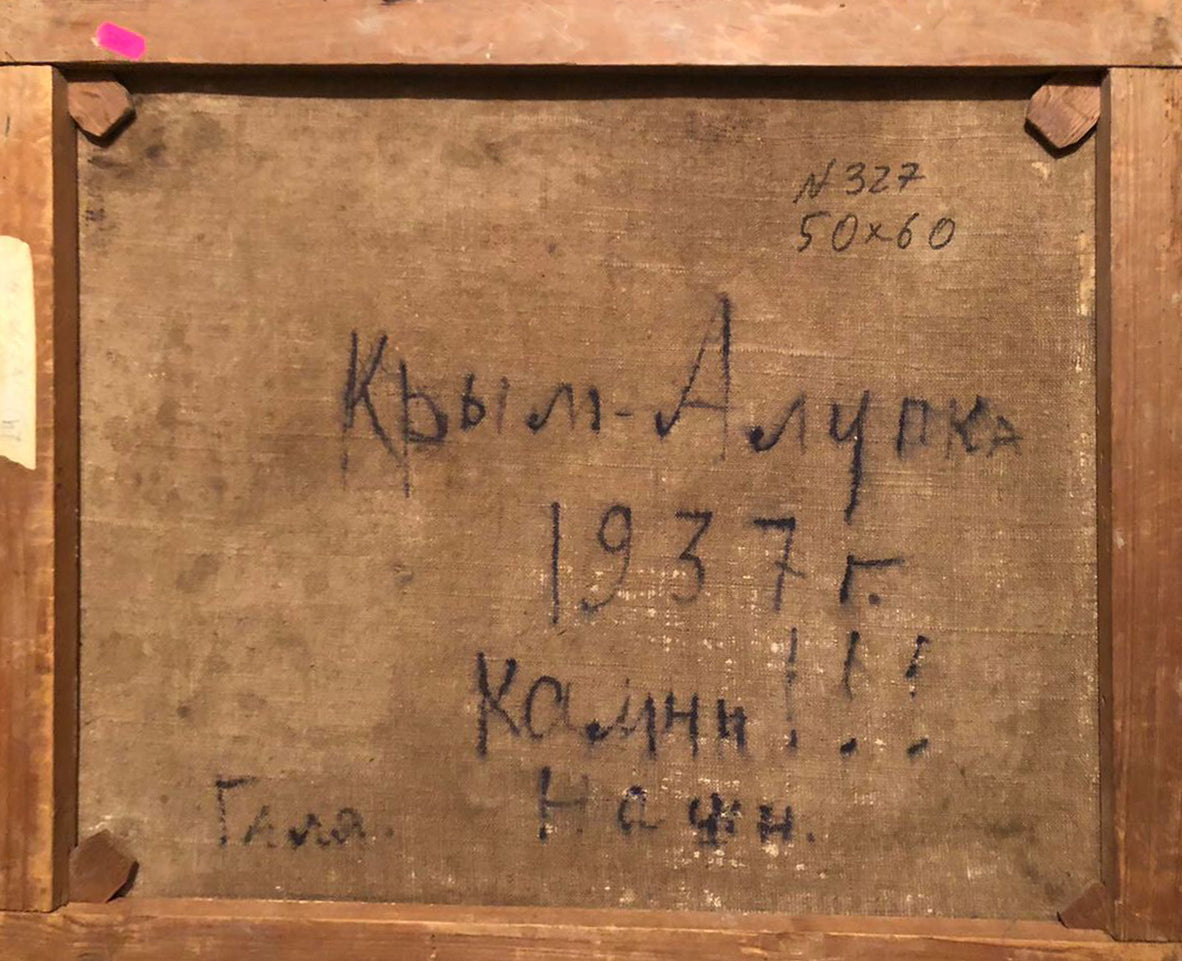 N 327
50×60
Крым-Алупка
1937 г.
Камни!!!
Наши.
Галя.